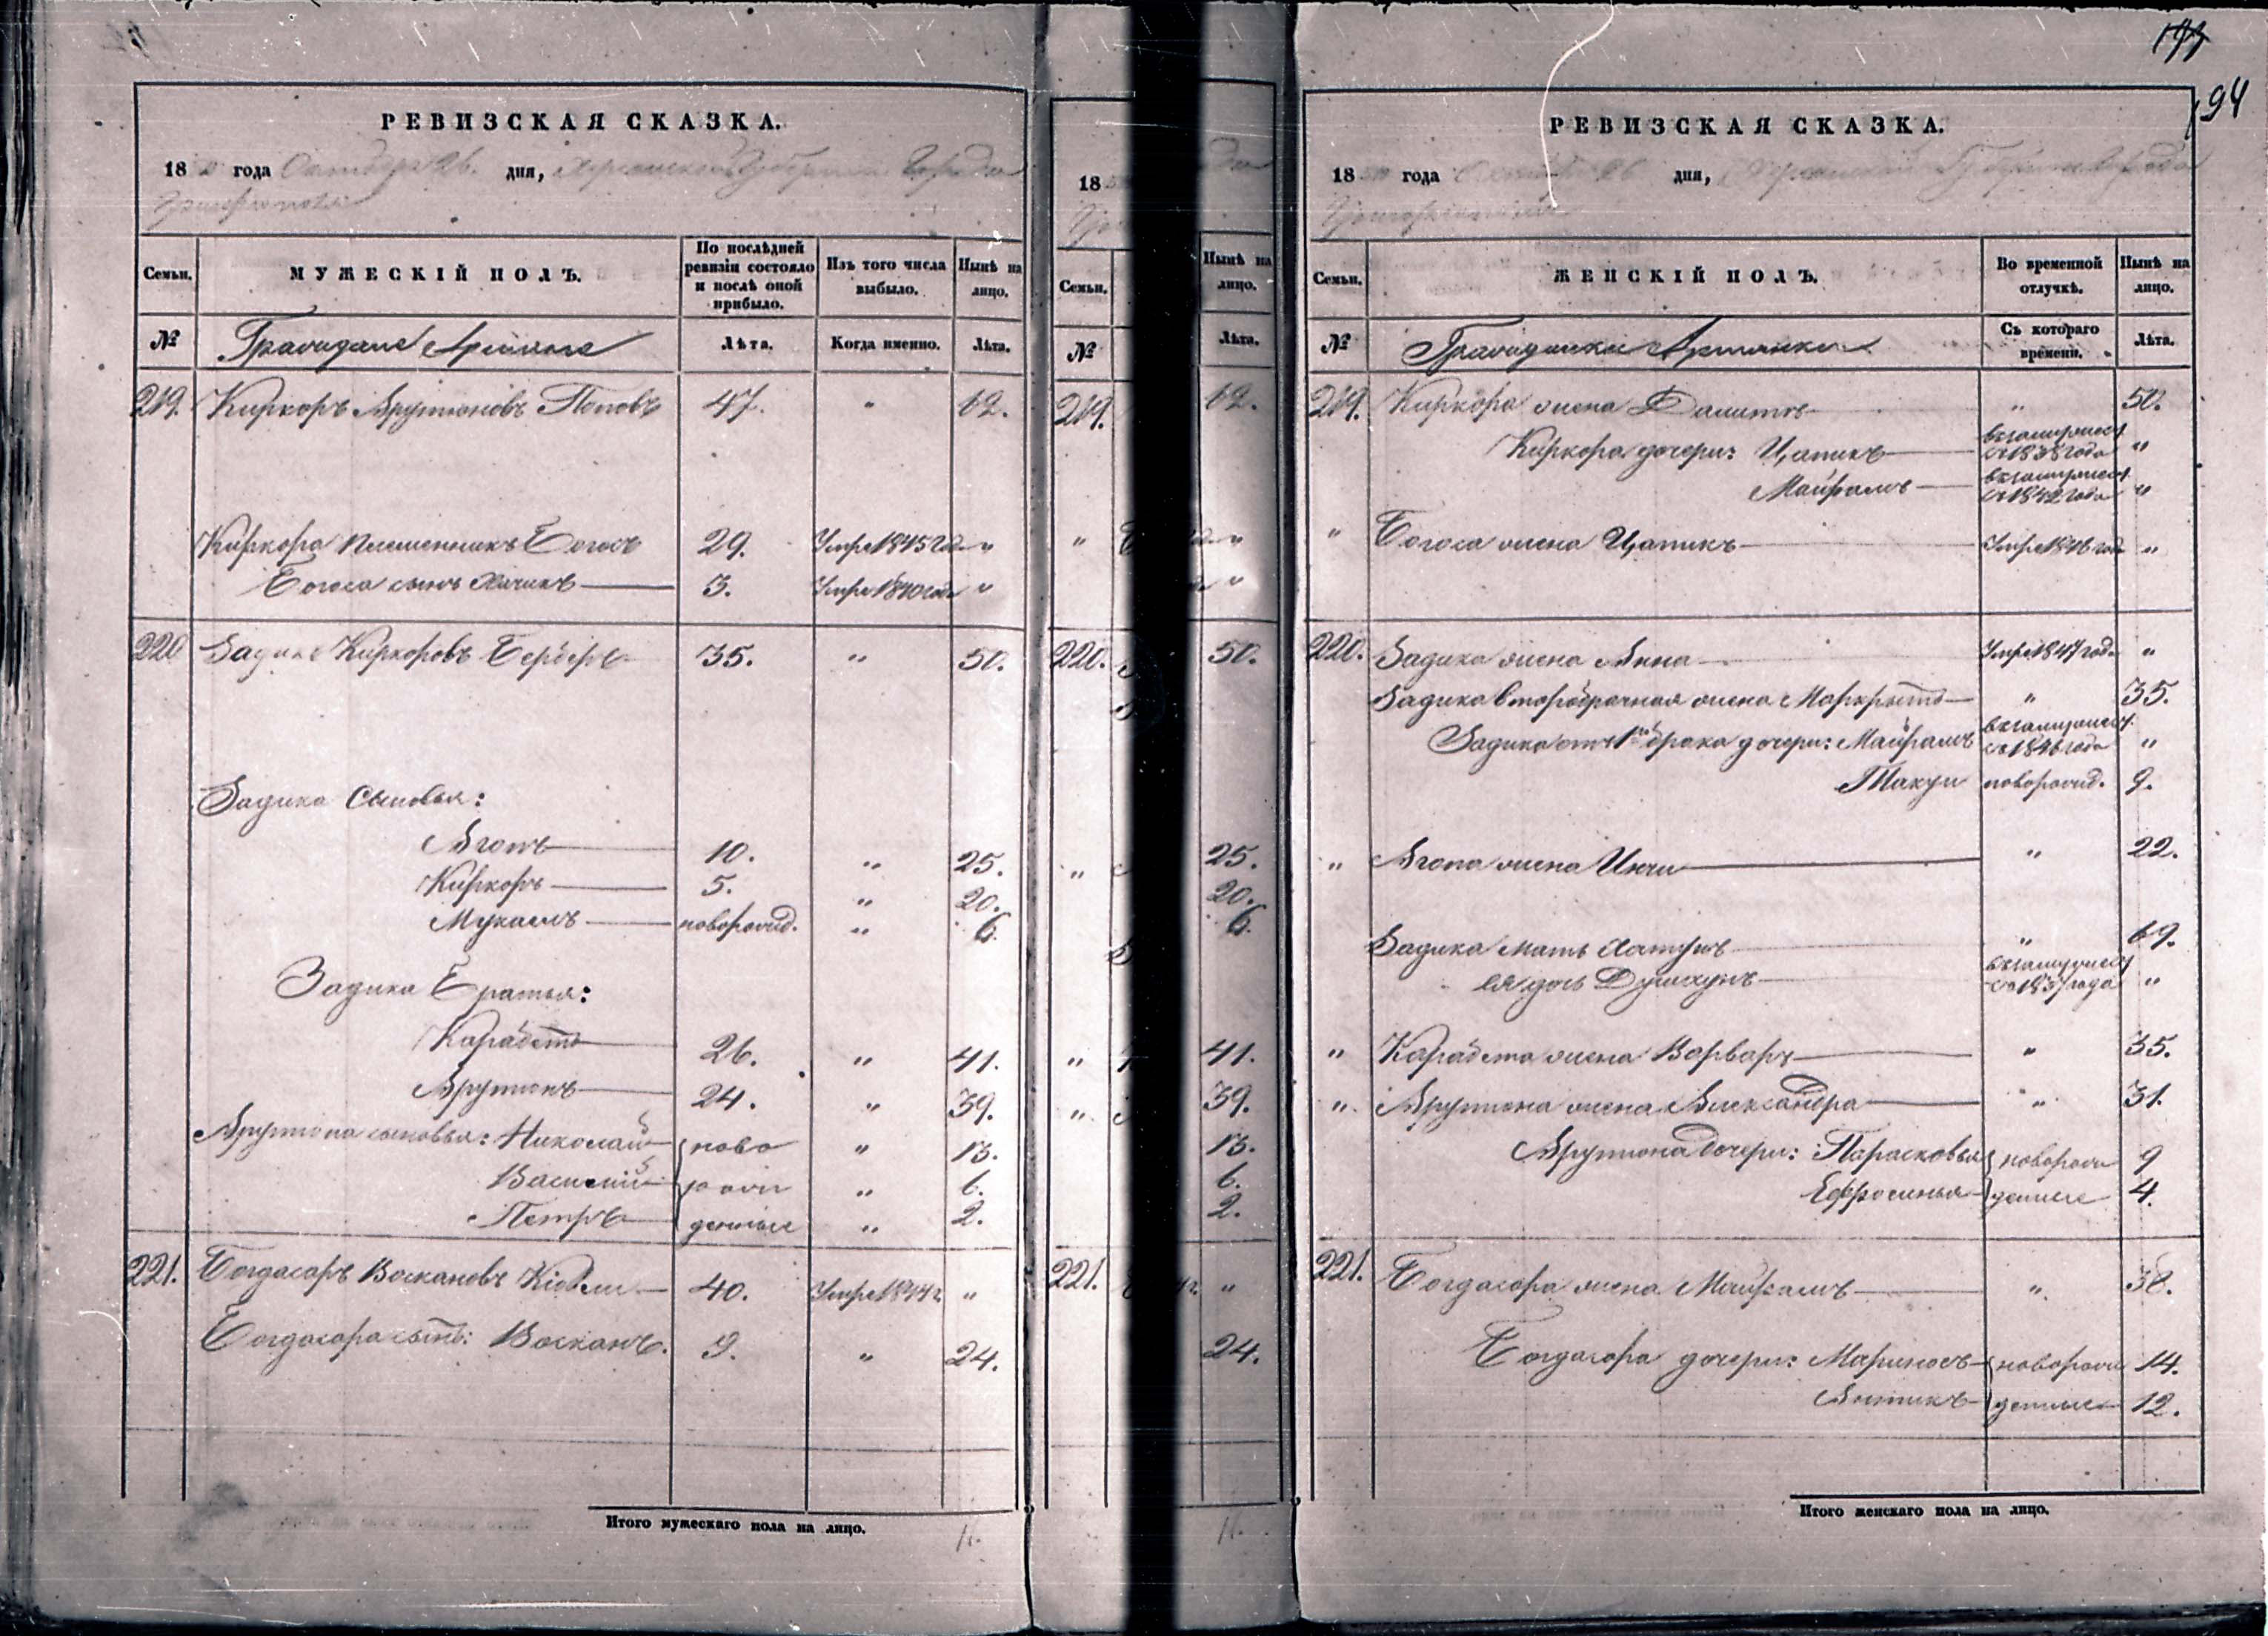 193
94
РЕВИЗСКАЯ СКАЗКА.
1850 года Октября 26. дня, Херсонской Губерніи Города
Григоріополя
Семьи. МУЖЕСКІЙ ПОЛЪ. По послѣдней ревизіи состояло и послѣ оной прибыло. Изъ того числа выбыло. Нынѣ на лицо.
№ Граждане Армяне Лѣта. Когда именно. Лѣта.
219. Киркоръ Арутюновъ Поповъ 47. " 62.
Киркора племенникъ Богосъ 29. Умре 1845 года "
Богоса сынъ Хачикъ 3. Умре 1840 года "
220 Задикъ Киркоровъ Берберъ 35. " 50.
Задика Сыновья:
Агопъ 10. " 25.
Киркоръ 5. " 20.
Мукаелъ новорожд. " 6.
Задика Братья:
Карабетъ 26. " 41.
Арутюнъ 24. " 39.
Арутюна сыновья: Николай ново " 13.
Василій рож " 6.
Петръ денные " 2.
221. Богдасаръ Воскановъ 40. Умре 1844 г. "
Богдасара сынъ: Восканъ. 9. " 24.
Итого мужескаго пола на лицо.
18
Семьи. Нынѣ на лицо.
№ Лѣта.
219. 62.
" "
"
220. 50.
" 25.
20.
6.
" 41.
" 39.
13.
6.
2.
221. "
24.
РЕВИЗСКАЯ СКАЗКА.
1850 года Октября 26 дня, Херсонской Губерніи Города
Григоріополя
Семьи. ЖЕНСКІЙ ПОЛЪ. Во временной отлучкѣ. Нынѣ на лицо.
№ Гражданки Армянки Съ котораго времени. Лѣта.
219. Киркора жена " 50.
Киркора дочери: Цатикъ въ замужест. съ 1838 года "
Майрамъ въ замужест. съ 1842 года "
" Богоса жена Цатикъ Умре 1846 года "
220. Задика жена Анна Умре 1847 года "
Задика второбрачная жена Маркритъ " 35.
Задика отъ 1го брака дочери: Майрамъ въ замужест. съ 1846 года "
Такуи новорожд. 9.
" Агопа жена Инчи " 22.
Задика мать Хатунъ " 69.
ея дочь въ замужест. съ 1837 года "
" Карабета жена Варваръ " 35.
" Арутюна жена Александра " 31.
Арутюна дочери: Парасковья новорож 9
Ефросинья денные 4.
221. Богдасара жена Майрамъ " 38.
Богдасара дочери: Мариносъ новорож 14.
Антикъ денные 12.
Итого женскаго пола на лицо.